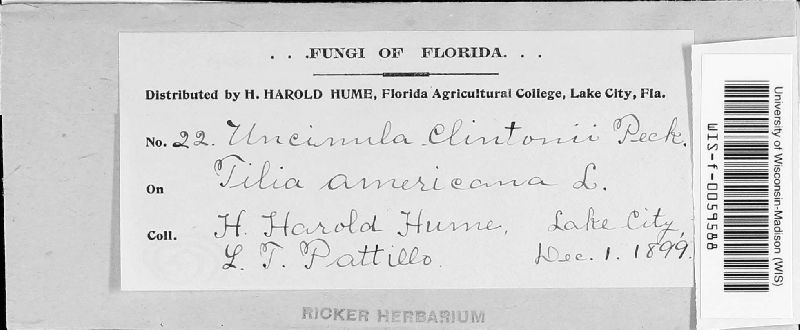 . . .FUNGI OF FLORIDA. . .
Distributed by H. HAROLD HUME, Florida Agricultural College, Lake City, Fla.
No. 22. Uncinula Clintonii Peck.
On Tilia americana L.
Coll. H. Harold Hume, Lake City,
L. T. Pattillo. Dec. 1. 1899.
RICKER HERBARIUM
University of Wisconsin-Madison (WIS)
WIS-f-0059588